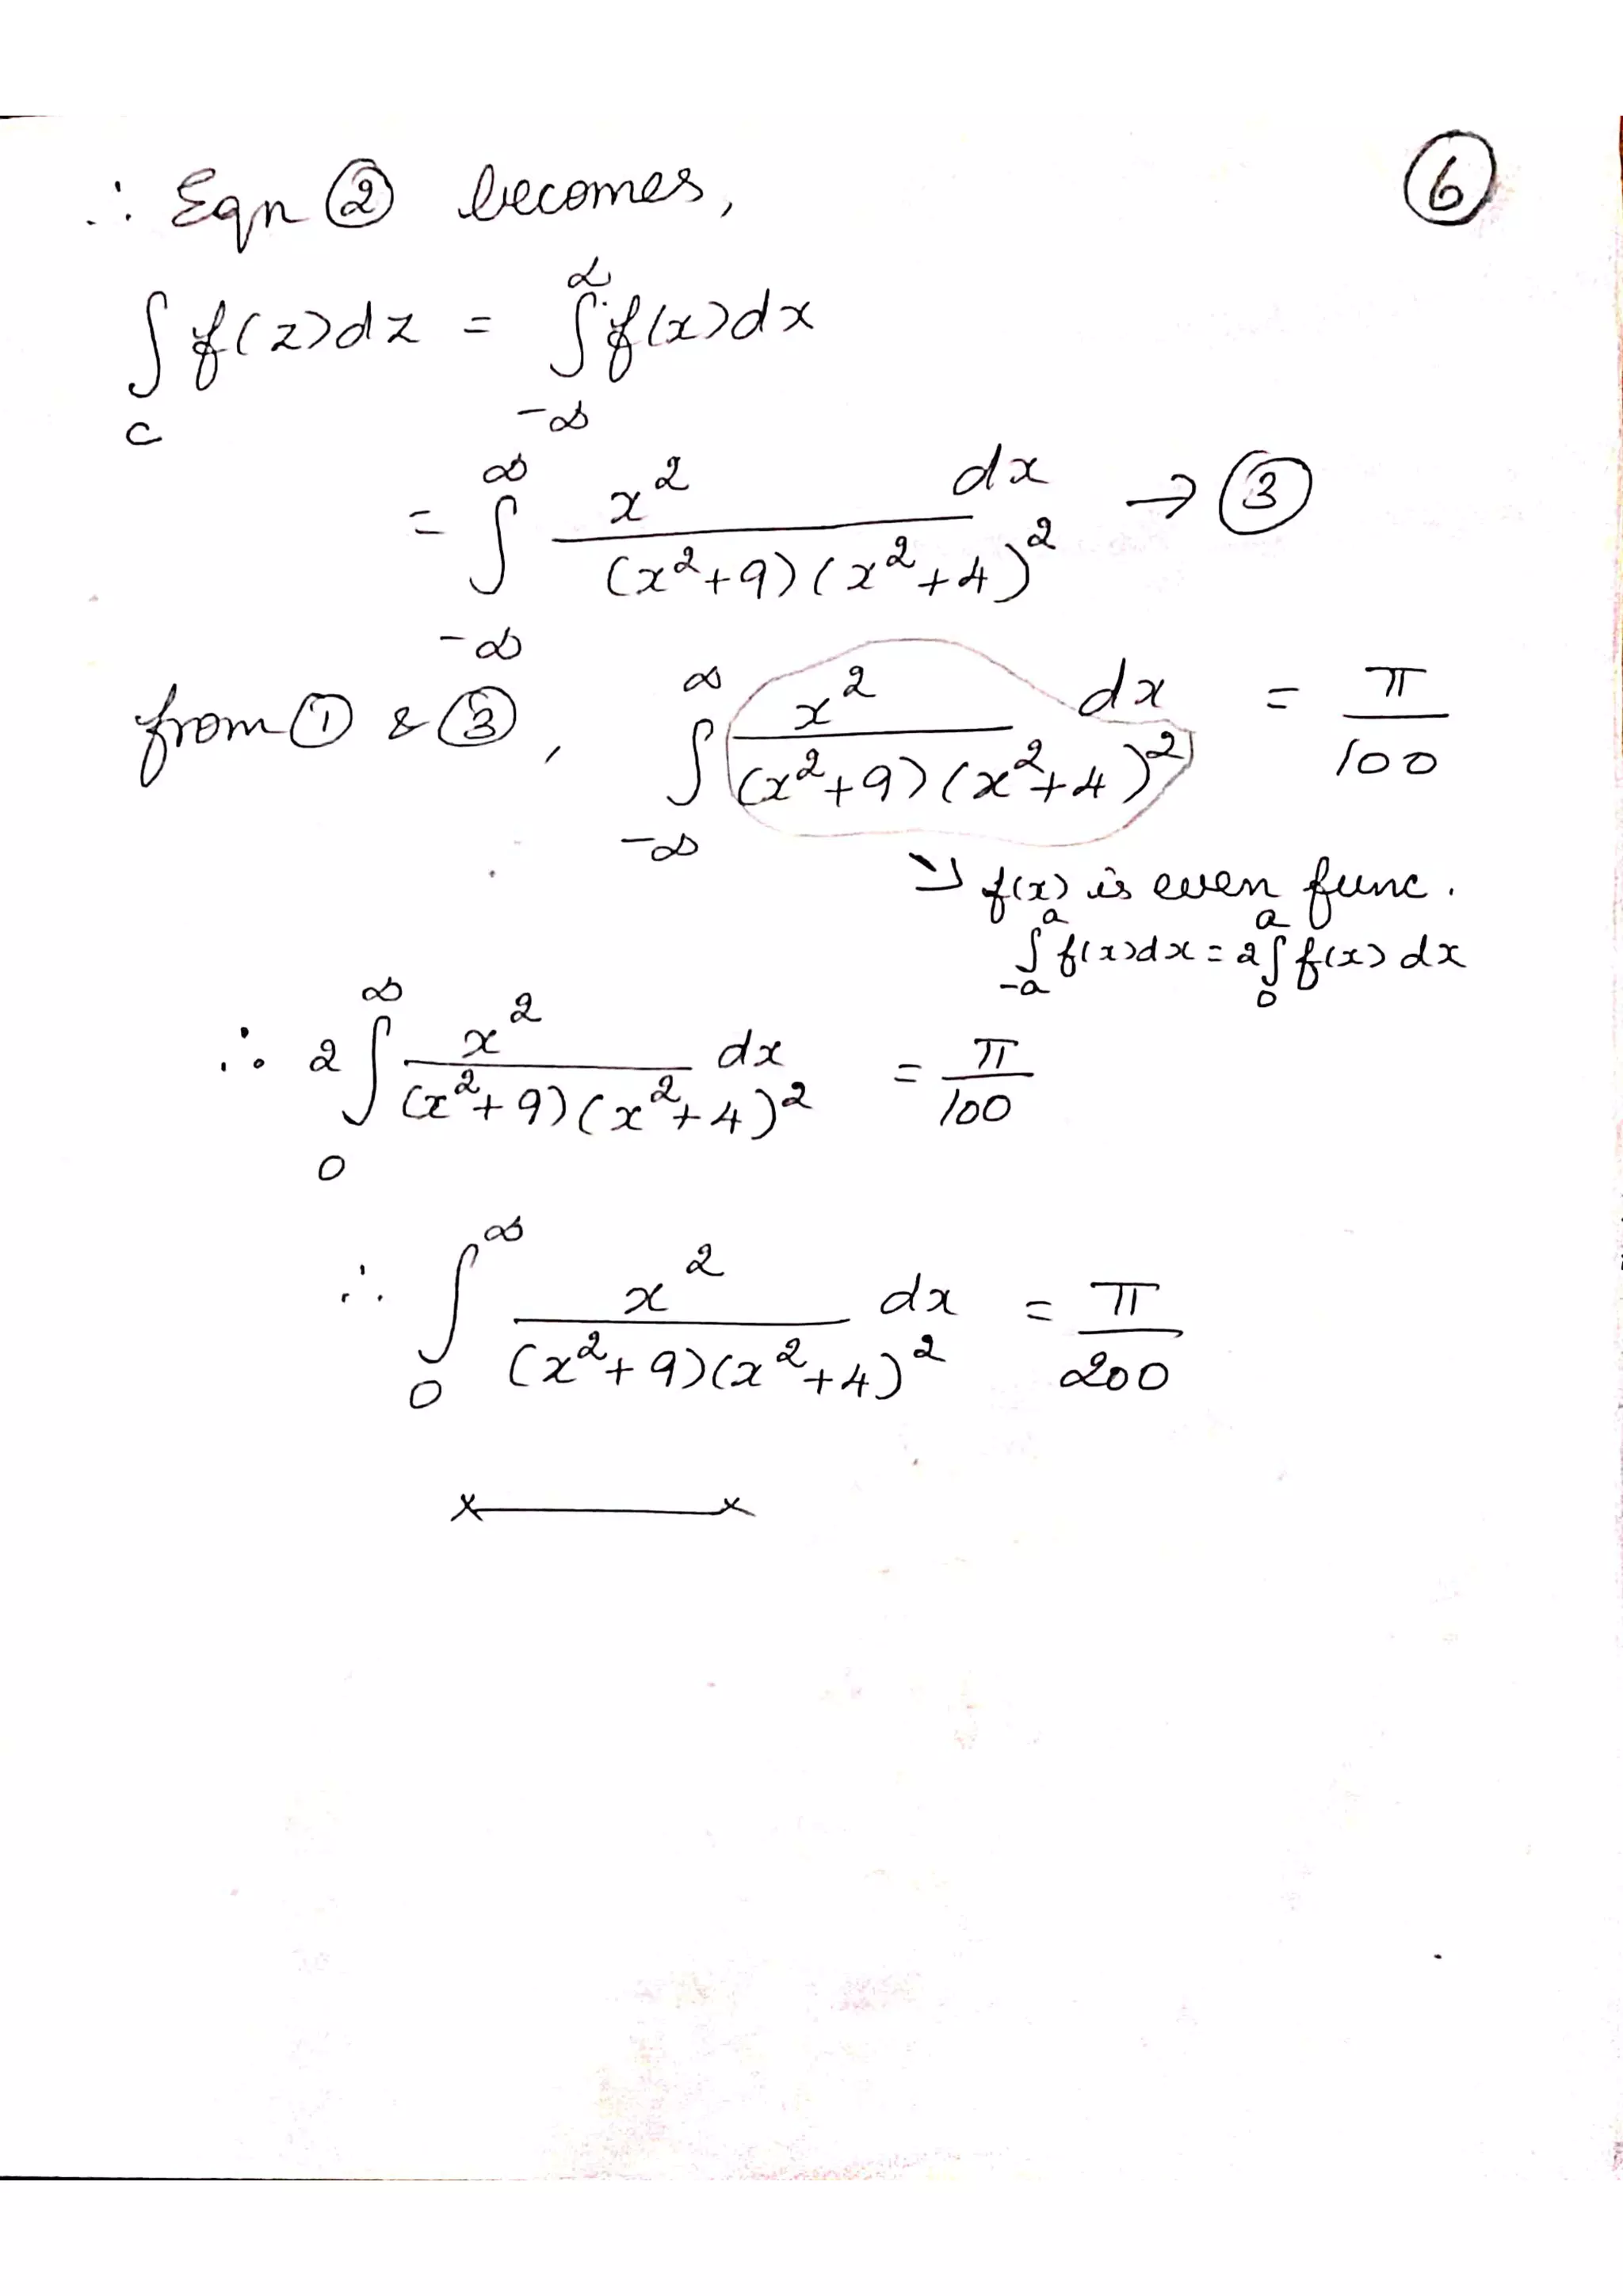 ∴ Eqn ② becomes, ⑥
∫_C f(z)dz = ∫_{-∞}^{∞} f(x)dx
= ∫_{-∞}^{∞} x²/((x²+9)(x²+4)²) dx → ③
from ① & ③, ∫_{-∞}^{∞} x²/((x²+9)(x²+4)²) dx = π/100
↘ f(x) is even func.
∫_{-a}^{a} f(x)dx = 2∫_{0}^{a} f(x) dx
∴ 2∫_{0}^{∞} x²/((x²+9)(x²+4)²) dx = π/100
∴ ∫_{0}^{∞} x²/((x²+9)(x²+4)²) dx = π/200
x———x